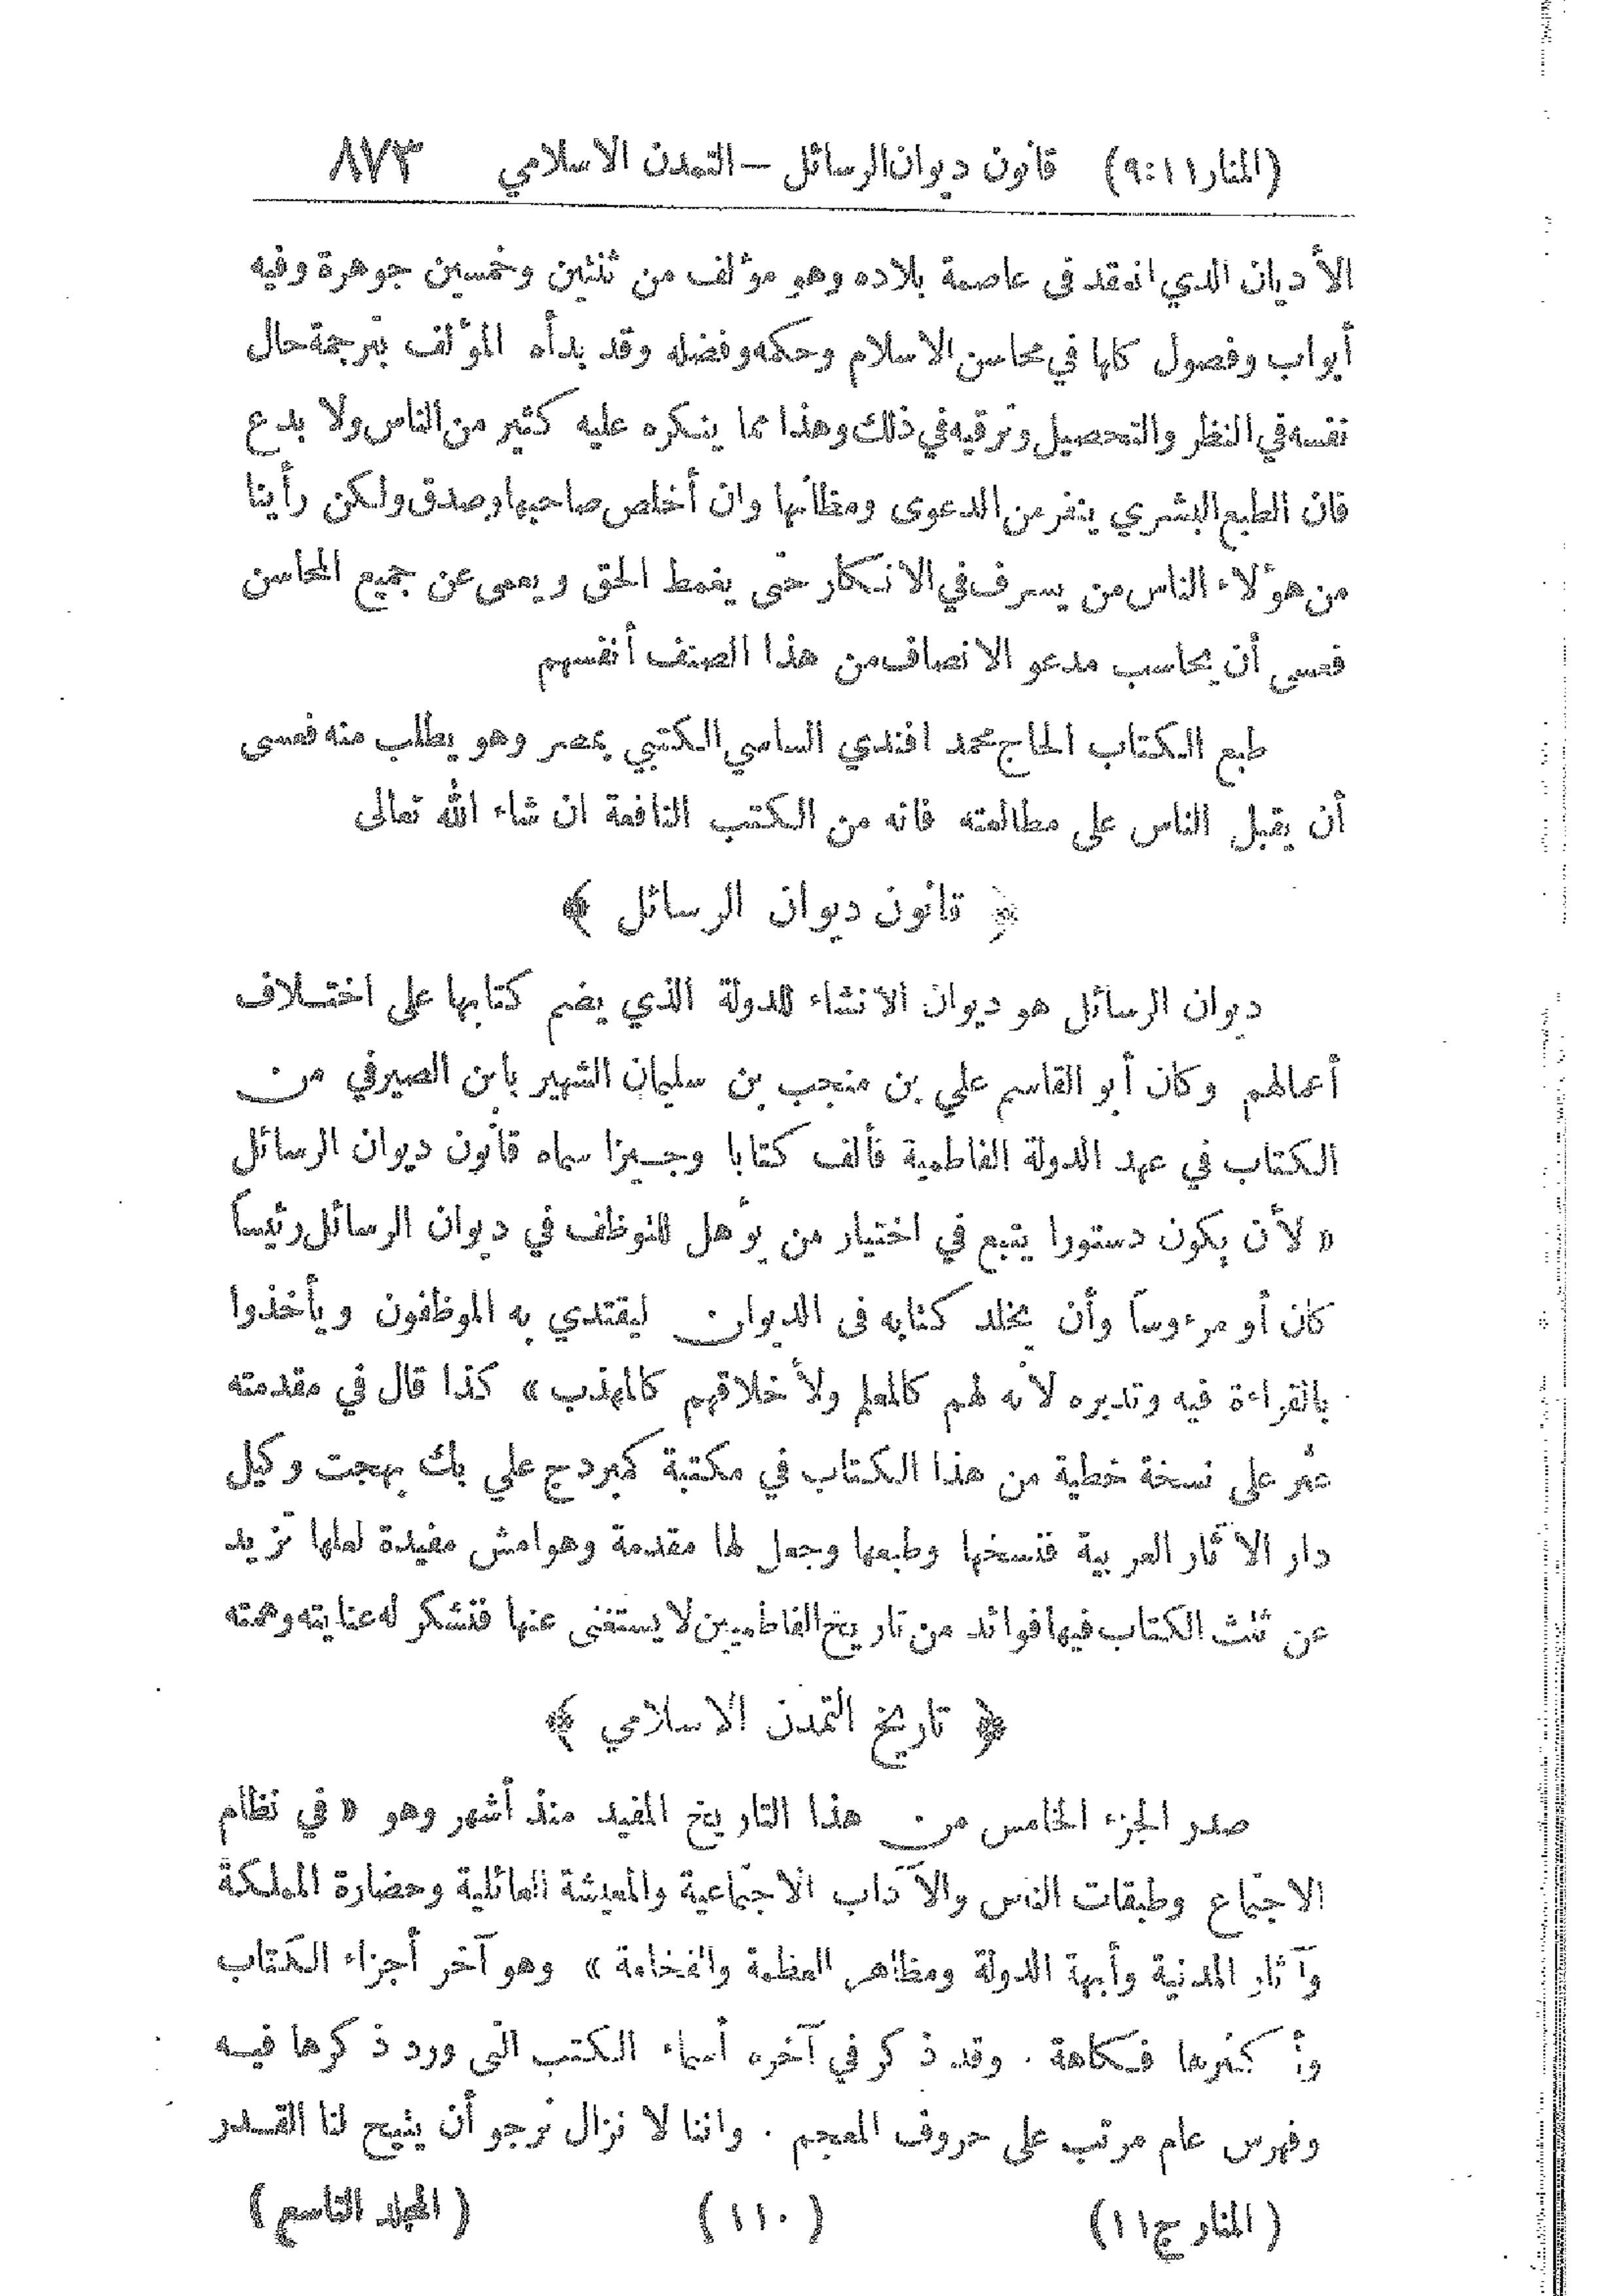 (المنار ١١:٩) قانون ديوان الرسائل – التمدن الاسلامي ٨٧٣
الأديان الذي انعقد في عاصمة بلاده وهو مؤلف من ثنتين وخمسين جوهرة وفيه
أبواب وفصول كلها في محاسن الاسلام وحكمه وفضله وقد بدأه المؤلف بترجمة حال
نفسه في النظر والتحصيل وترقيه في ذلك وهذا مما ينكره عليه كثير من الناس ولا بدع
فان الطبع البشري ينفر من الدعوى ومظانها وان أخلص صاحبها وصدق ولكن رأينا
من هؤلاء الناس من يسرف في الانكار حتى يغمط الحق ويعمى عن جميع المحاسن
فعسى أن يحاسب مدعو الانصاف من هذا الصنف أنفسهم
طبع الكتاب الحاج محمد افندي الساسي الكتبي بمصر وهو يطلب منه فعسى
أن يقبل الناس على مطالعته فانه من الكتب النافعة ان شاء الله تعالى
﴿ قانون ديوان الرسائل ﴾
ديوان الرسائل هو ديوان الانشاء للدولة الذي يضم كتابها على اختلاف
أعمالهم وكان أبو القاسم علي بن منجب بن سليمان الشهير بابن الصيرفي من
الكتاب في عهد الدولة الفاطمية فألف كتابا وجيزا سماه قانون ديوان الرسائل
« لأن يكون دستورا يتبع في اختيار من يؤهل للتوظف في ديوان الرسائل رئيساً
كان أو مرءوساً وأن يخلد كتابه في الديوان ليقتدي به الموظفون ويأخذوا
بالقراءة فيه وتدبره لأنه لهم كالمعلم ولأخلاقهم كالمهذب » كذا قال في مقدمته
عثر على نسخة خطية من هذا الكتاب في مكتبة كمبردج علي بك بهجت وكيل
دار الآثار العربية فنسخها وطبعها وجعل لها مقدمة وهوامش مفيدة لعلها تزيد
عن ثلث الكتاب فيها فوائد من تاريخ الفاطميين لا يستغنى عنها فنشكر له عنايته وهمته
﴿ تاريخ التمدن الاسلامي ﴾
صدر الجزء الخامس من هذا التاريخ المفيد منذ أشهر وهو « في نظام
الاجتماع وطبقات الناس والآداب الاجتماعية والمعيشة العائلية وحضارة المملكة
وآثار المدنية وأبهة الدولة ومظاهر العظمة والفخامة » وهو آخر أجزاء الكتاب
وأكثرها فكاهة . وقد ذكر في آخره أسماء الكتب التي ورد ذكرها فيه
وفهرس عام مرتب على حروف المعجم . واننا لا نزال نرجو أن يتيح لنا القدر
(المنار ج ١١) (١١٠) (المجلد التاسع)